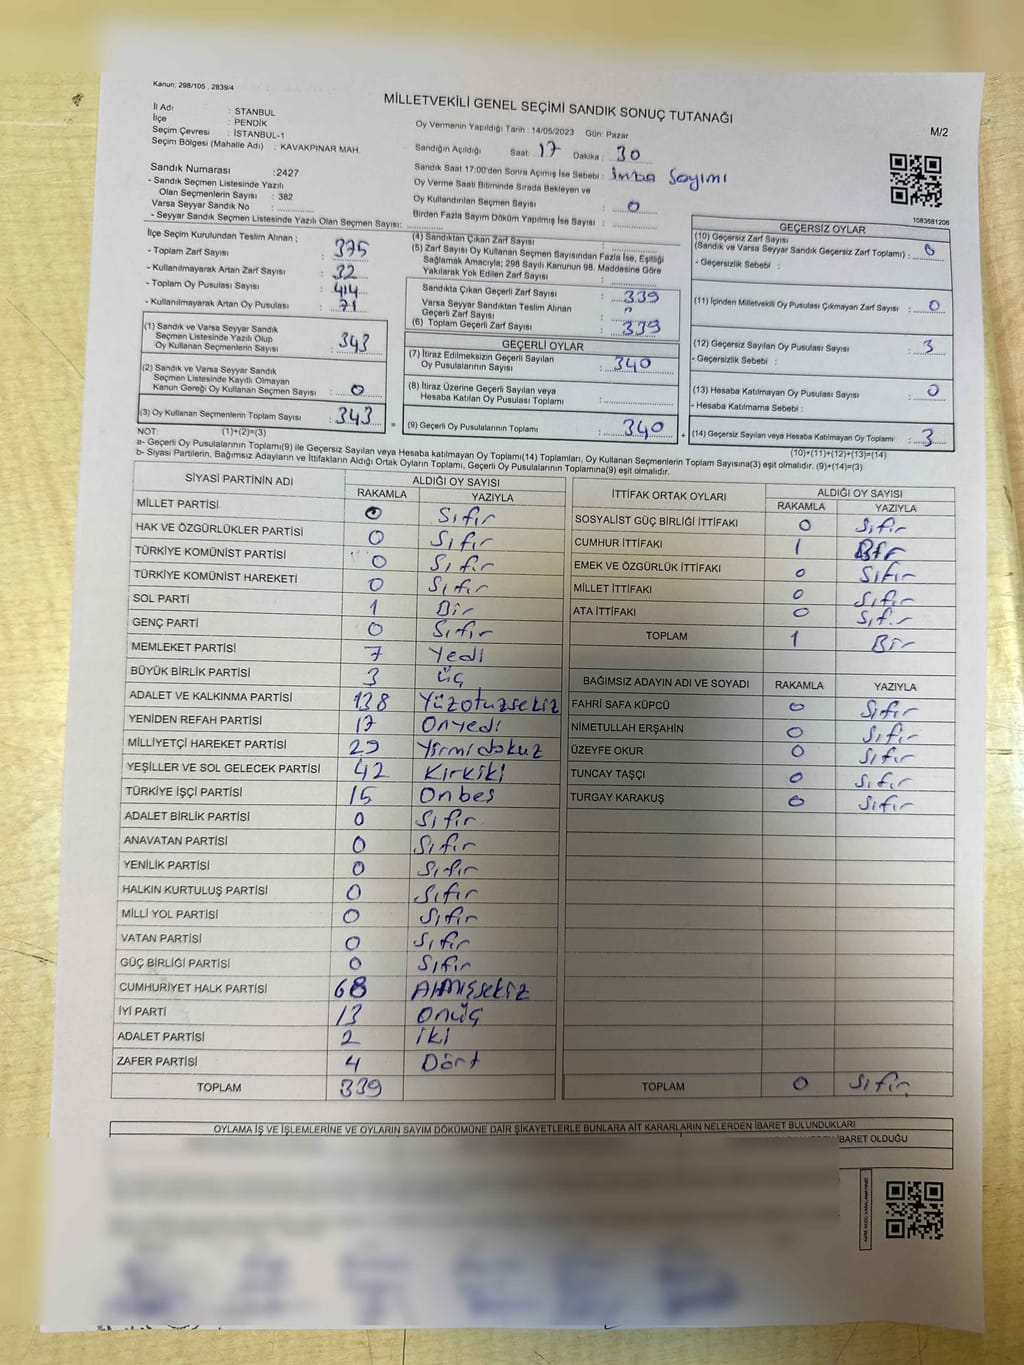 Kanun: 298/105 , 2839/4
MİLLETVEKİLİ GENEL SEÇİMİ SANDIK SONUÇ TUTANAĞI
M/2
İl Adı : İSTANBUL
İlçe : PENDİK
Seçim Çevresi : İSTANBUL-1
Seçim Bölgesi (Mahalle Adı) : KAVAKPINAR MAH.
Oy Vermenin Yapıldığı Tarih : 14/05/2023 Gün: Pazar
Sandığın Açıldığı Saat: 17 Dakika : 30
Sandık Saat 17:00'den Sonra Açımış İse Sebebi : imza Sayımı
Oy Verme Saati Bitiminde Sırada Bekleyen ve
Oy Kullandırılan Seçmen Sayısı : 0
Birden Fazla Sayım Döküm Yapılmış İse Sayısı :
Sandık Numarası :2427
- Sandık Seçmen Listesinde Yazılı
Olan Seçmenlerin Sayısı : 382
Varsa Seyyar Sandık No :
- Seyyar Sandık Seçmen Listesinde Yazılı Olan Seçmen Sayısı:
1083581206
İlçe Seçim Kurulundan Teslim Alınan ;
- Toplam Zarf Sayısı : 375
- Kullanılmayarak Artan Zarf Sayısı : 32
- Toplam Oy Pusulası Sayısı : 414
- Kullanılmayarak Artan Oy Pusulası : 71
(1) Sandık ve Varsa Seyyar Sandık
Seçmen Listesinde Yazılı Olup
Oy Kullanan Seçmenlerin Sayısı : 343
(2) Sandık ve Varsa Seyyar Sandık
Seçmen Listesinde Kayıtlı Olmayan
Kanun Gereği Oy Kullanan Seçmen Sayısı : 0
(3) Oy Kullanan Seçmenlerin Toplam Sayısı : 343
(1)+(2)=(3)
(4) Sandıktan Çıkan Zarf Sayısı :
(5) Zarf Sayısı Oy Kullanan Seçmen Sayısından Fazla İse, Eşitliği
Sağlamak Amacıyla; 298 Sayılı Kanunun 98. Maddesine Göre
Yakılarak Yok Edilen Zarf Sayısı :
Sandıkta Çıkan Geçerli Zarf Sayısı : 339
Varsa Seyyar Sandıktan Teslim Alınan
Geçerli Zarf Sayısı :
(6) Toplam Geçerli Zarf Sayısı : 339
GEÇERLİ OYLAR
(7) İtiraz Edilmeksizin Geçerli Sayılan
Oy Pusulalarının Sayısı : 340
(8) İtiraz Üzerine Geçerli Sayılan veya
Hesaba Katılan Oy Pusulası Toplamı :
= (9) Geçerli Oy Pusulalarının Toplamı : 340
GEÇERSİZ OYLAR
(10) Geçersiz Zarf Sayısı
(Sandık ve Varsa Seyyar Sandık Geçersiz Zarf Toplamı) : 0
- Geçersizlik Sebebi :
(11) İçinden Milletvekili Oy Pusulası Çıkmayan Zarf Sayısı : 0
(12) Geçersiz Sayılan Oy Pusulası Sayısı : 3
- Geçersizlik Sebebi :
(13) Hesaba Katılmayan Oy Pusulası Sayısı : 0
- Hesaba Katılmama Sebebi :
+ (14) Geçersiz Sayılan veya Hesaba Katılmayan Oy Toplamı : 3
(10)+(11)+(12)+(13)=(14)
NOT:
a- Geçerli Oy Pusulalarının Toplamı(9) ile Geçersiz Sayılan veya Hesaba katılmayan Oy Toplamı(14) Toplamları, Oy Kullanan Seçmenlerin Toplam Sayısına(3) eşit olmalıdır. (9)+(14)=(3)
b- Siyasi Partilerin, Bağımsız Adayların ve İttifakların Aldığı Ortak Oyların Toplamı, Geçerli Oy Pusulalarının Toplamına(9) eşit olmalıdır.
SİYASİ PARTİNİN ADI ALDIĞI OY SAYISI
RAKAMLA YAZIYLA
MİLLET PARTİSİ 0 Sıfır
HAK VE ÖZGÜRLÜKLER PARTİSİ 0 Sıfır
TÜRKİYE KOMÜNİST PARTİSİ 0 Sıfır
TÜRKİYE KOMÜNİST HAREKETİ 0 Sıfır
SOL PARTİ 1 Bir
GENÇ PARTİ 0 Sıfır
MEMLEKET PARTİSİ 7 Yedi
BÜYÜK BİRLİK PARTİSİ 3 üç
ADALET VE KALKINMA PARTİSİ 138 Yüzotuzsekiz
YENİDEN REFAH PARTİSİ 17 Onyedi
MİLLİYETÇİ HAREKET PARTİSİ 29 Yirmidokuz
YEŞİLLER VE SOL GELECEK PARTİSİ 42 Kırkiki
TÜRKİYE İŞÇİ PARTİSİ 15 Onbeş
ADALET BİRLİK PARTİSİ 0 Sıfır
ANAVATAN PARTİSİ 0 Sıfır
YENİLİK PARTİSİ 0 Sıfır
HALKIN KURTULUŞ PARTİSİ 0 Sıfır
MİLLİ YOL PARTİSİ 0 Sıfır
VATAN PARTİSİ 0 Sıfır
GÜÇ BİRLİĞİ PARTİSİ 0 Sıfır
CUMHURİYET HALK PARTİSİ 68 Altmışsekiz
İYİ PARTİ 13 Onüç
ADALET PARTİSİ 2 iki
ZAFER PARTİSİ 4 Dört
TOPLAM 339
İTTİFAK ORTAK OYLARI ALDIĞI OY SAYISI
RAKAMLA YAZIYLA
SOSYALİST GÜÇ BİRLİĞİ İTTİFAKI 0 Sıfır
CUMHUR İTTİFAKI 1 Bir
EMEK VE ÖZGÜRLÜK İTTİFAKI 0 Sıfır
MİLLET İTTİFAKI 0 Sıfır
ATA İTTİFAKI 0 Sıfır
TOPLAM 1 Bir
BAĞIMSIZ ADAYIN ADI VE SOYADI RAKAMLA YAZIYLA
FAHRİ SAFA KÜPCÜ 0 Sıfır
NİMETULLAH ERŞAHİN 0 Sıfır
ÜZEYFE OKUR 0 Sıfır
TUNCAY TAŞÇI 0 Sıfır
TURGAY KARAKUŞ 0 Sıfır
TOPLAM 0 Sıfır
OYLAMA İŞ VE İŞLEMLERİNE VE OYLARIN SAYIM DÖKÜMÜNE DAİR ŞİKAYETLERLE BUNLARA AİT KARARLARIN NELERDEN İBARET BULUNDUKLARI
İBARET OLDUĞU